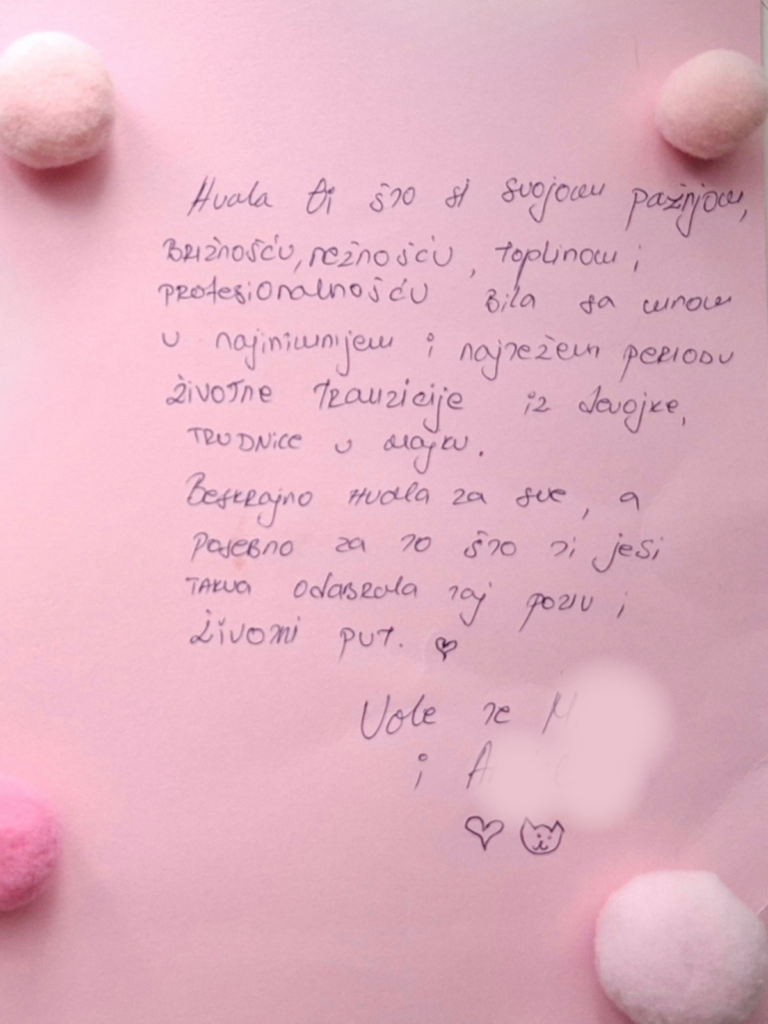 Hvala ti što si svojom pažnjom,
BRIŽNOŠĆU, NEŽNOŠĆU, TOPLINOM i
PROFESIONALNOŠĆU BILA SA MNOM
U najintimnijem i najnežem PERIODU
ŽIVOTNE TRANZICIJE iz devojke,
TRUDNICE U majku.
Beskrajno HVALA za sve, a
posebno za to što ti jesi
TAKVA odabrala taj poziv i
životni put.
Vole te M
i A